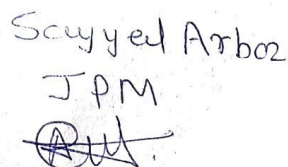 Sayyed Arboz
JPM